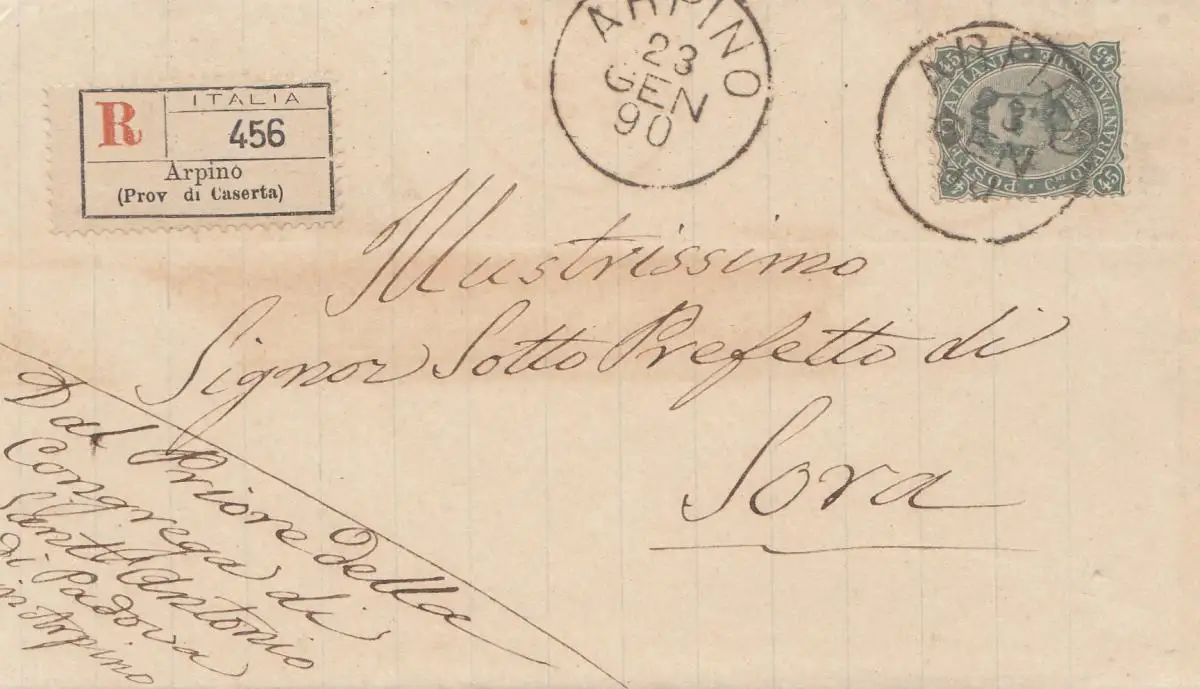 ARPINO
23
GEN
90
R ITALIA
456
Arpino
(Prov di Caserta)
45 45
POSTE ITALIANE
Cmi QUARANTACINQUE
45 45
ARPINO
GEN
Illustrissimo
Signor Sotto Prefetto di
Sora
Dal Priore Della
Congrega di
Sant'Antonio
di Padova
in Arpino